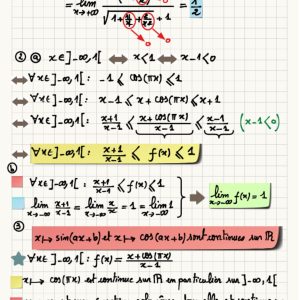 = lim x→+∞ 1 / (√(1 + 1/x + 1/x²) + 1) = 1/2
② ⓐ x ∈ ]-∞,1[ ⟺ x<1 ⟺ x-1<0
⟺ ∀x∈]-∞,1[ : -1 ≤ cos(πx) ≤ 1
⟺ ∀x∈]-∞,1[ : x-1 ≤ x+cos(πx) ≤ x+1
⟺ ∀x∈]-∞,1[ : (x+1)/(x-1) ≤ (x+cos(πx))/(x-1) ≤ (x-1)/(x-1) (x-1<0)
⟺ ∀x∈]-∞,1[ : (x+1)/(x-1) ≤ f(x) ≤ 1
ⓑ
∀x∈]-∞,1[ : (x+1)/(x-1) ≤ f(x) ≤ 1
lim x→-∞ (x+1)/(x-1) = lim x→-∞ x/x = 1 = lim x→-∞ 1 ⟹ lim x→-∞ f(x) = 1
③ x ↦ sin(ax+b) et x ↦ cos(ax+b) sont continues sur ℝ
∀x∈]-∞,1[ : f(x) = (x+cos(πx))/(x-1)
x ↦ cos(πx) est continue sur ℝ en particulier sur ]-∞,1[